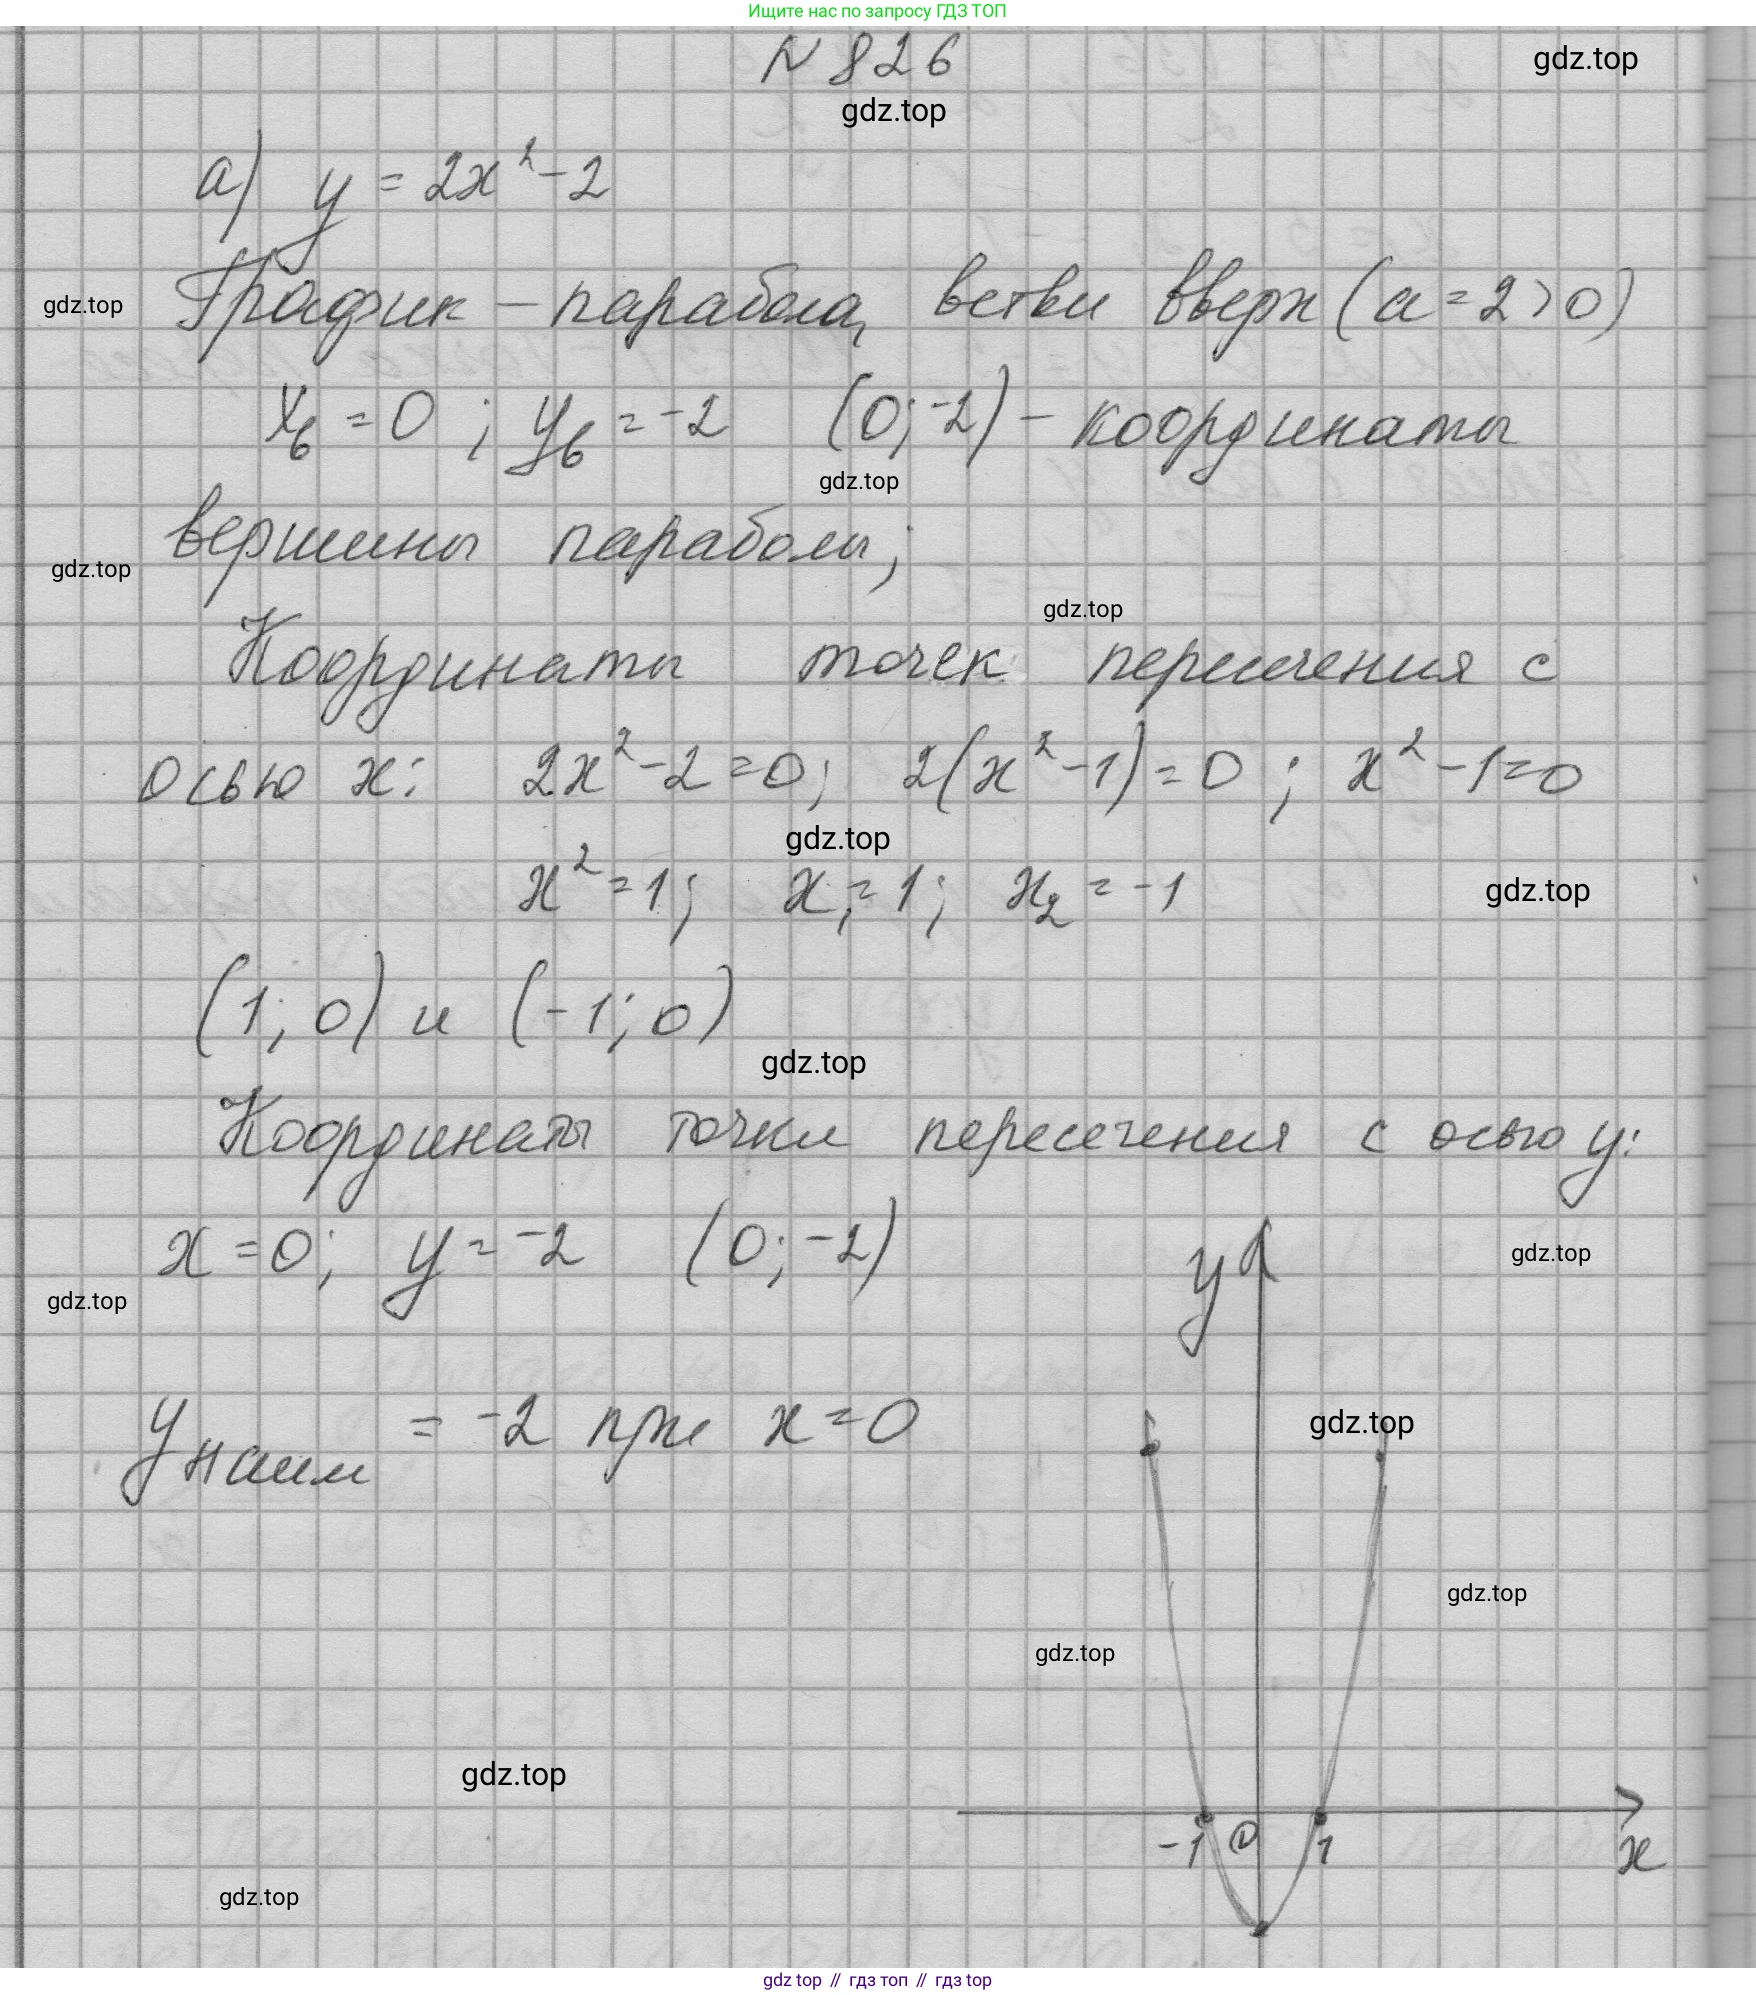 Ищите нас по запросу ГДЗ ТОП
N 826
gdz.top
gdz.top
а) y = 2x² - 2
gdz.top
График – парабола, ветви вверх (a = 2 > 0)
xв = 0 ; yв = -2 (0; -2) – координаты
gdz.top
вершины параболы;
gdz.top
gdz.top
Координаты точек пересечения с
осью x: 2x² - 2 = 0; 2(x² - 1) = 0 ; x² - 1 = 0
gdz.top
x² = 1; x₁ = 1; x₂ = -1
gdz.top
(1; 0) и (-1; 0)
gdz.top
Координаты точки пересечения с осью y:
x = 0; y = -2 (0; -2)
y
gdz.top
gdz.top
yнаим = -2 при x = 0
gdz.top
gdz.top
gdz.top
gdz.top
-1 0 1 x
gdz.top
gdz top // гдз топ // гдз top